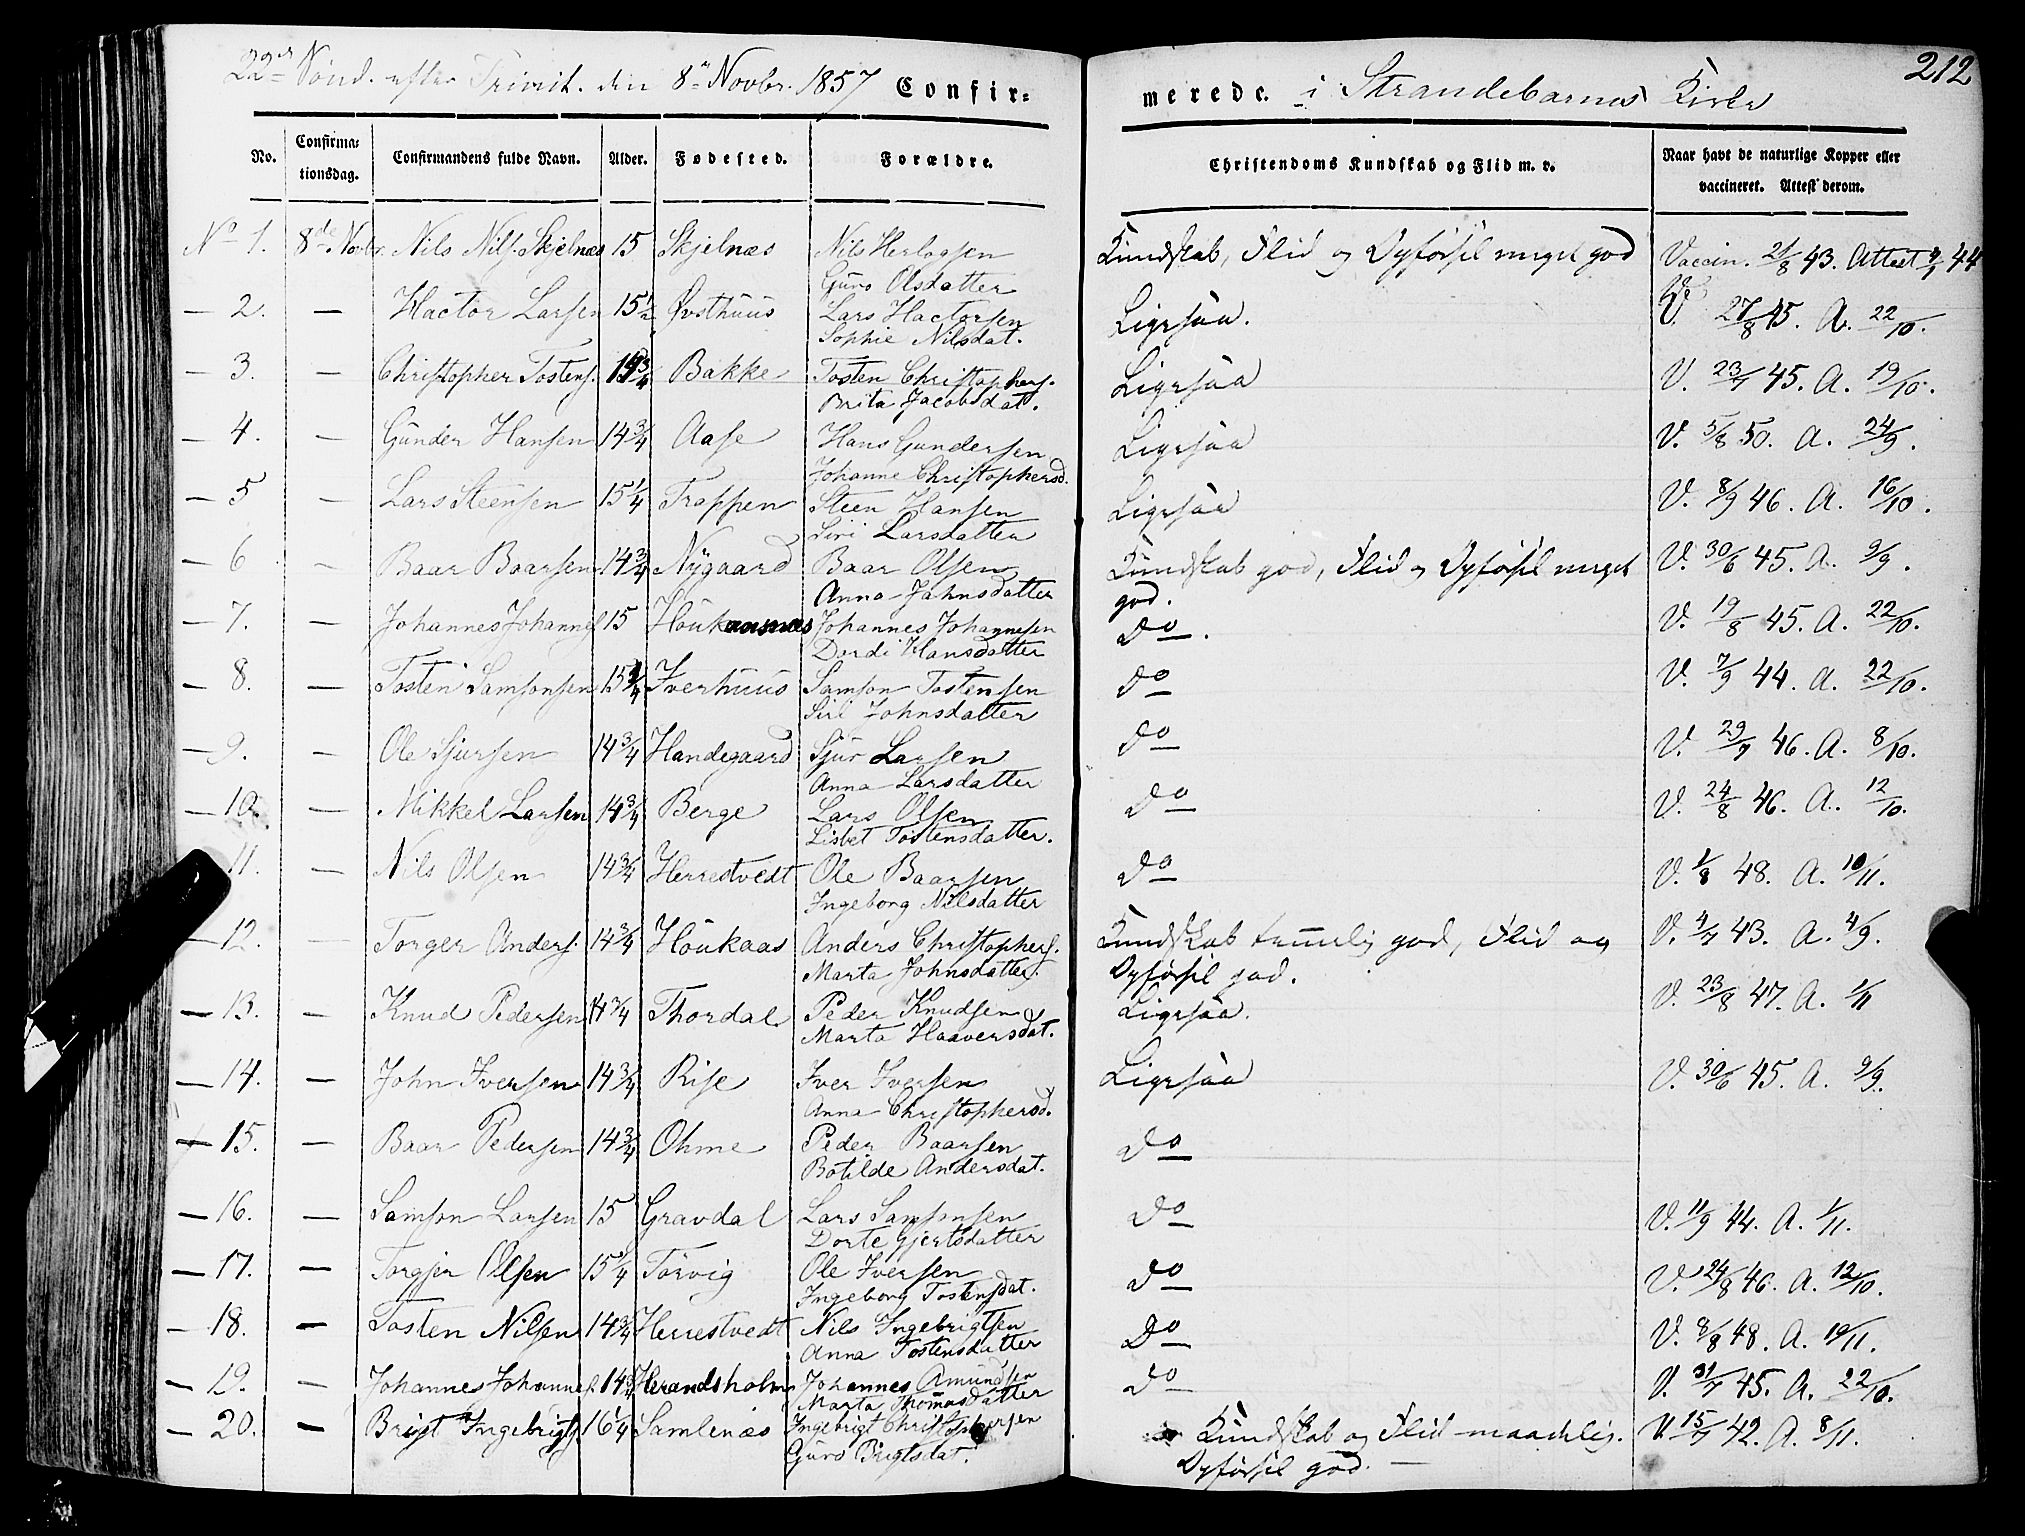 22de Sönd. efter Trinit. den 8de Novbr. 1857 Confir-
merede. i Strandebarnes Kirke
212
No.
Confirma-
tionsdag.
Confirmandens fulde Navn.
Alder.
Fødested.
Forældre.
Christendoms Kundskab og Flid m. v.
Naar havt de naturlige Kopper eller
vaccineret. Attest derom.
No 1. 8de Novbr. Nils Nils. Skjelnæs 15 Skjelnæs Nils Herlogsen Kundskab, Flid og Opførsel meget god Vaccin. 21/8 43. Attest 9/9 44
Guro Olsdatter
— 2. — Hactor Larsen 15 1/2 Øvsthuus Lars Hactorsen Ligesaa. V. 27/8 45. A. 22/10.
Sophie Nilsdat.
— 3. — Christopher Tostens. 14 3/4 Bakke Tosten Christophers. Ligesaa V. 23/7 45. A. 19/10.
Brita Jacobsdat.
— 4. — Gunder Hansen 14 3/4 Aase Hans Gundersen Ligesaa V. 5/8 50. A. 24/9.
Johanne Christophersd.
— 5 — Lars Steensen 15 1/4 Trappen Steen Hansen Ligesaa V. 8/9 46. A. 16/10.
Siri Larsdatter
— 6 — Baar Baarsen 14 3/4 Nygaard Baar Olsen Kundskab god, Flid og Opførsel meget V. 30/6 45. A. 9/9.
Anna Jahnsdatter god.
— 7. — Johannes Johannes. 15 Houkansnæs Johannes Johannesen do. V. 19/8 45. A. 22/10.
Dordi Hansdatter
— 8. — Tosten Samsonsen 15 1/4 Iverhuus Samson Tostensen do V. 7/9 44. A. 22/10.
Siri Johnsdatter
— 9. — Ole Sjursen 14 3/4 Handegaard Sjur Larsen do V. 29/7 46. A. 8/10.
Anna Larsdatter
— 10. — Mikkel Larsen 14 3/4 Berge Lars Olsen do V. 24/8 46. A. 12/10.
Lisbet Tostensdatter.
11. — Nils Olsen 14 3/4 Herrestvedt Ole Baarsen do V. 1/8 48. A. 10/11.
Ingeborg Nilsdatter
— 12. — Torger Anders. 14 3/4 Houkaas Anders Christophers. Kundskab temmelig god, Flid og V. 4/7 43. A. 4/9.
Marta Johnsdatter. Opførsel god.
— 13. — Knud Pedersen 14 3/4 Thordal Peder Knudsen Ligesaa. V. 23/8 47. A. 1/11
Marta Haaversdat.
— 14. — John Iversen 14 3/4 Rise Iver Iversen Ligesaa V. 30/6 45. A. 9/9.
Anna Christophersd.
— 15. — Baar Pedersen 14 3/4 Ohme Peder Baarsen do
Botilde Andersdat.
— 16. — Samson Larsen 15 Gravdal Lars Samsonsen do V. 11/9 44. A. 1/11.
Dorte Gjertsdatter
— 17. — Torgjer Olsen 15 1/4 Torvig Ole Iversen do V. 24/8 46. A. 12/10.
Ingeborg Tostensdat.
— 18. — Tosten Nilsen 14 3/4 Herrestvedt Nils Ingebrigtsen Do V. 8/8 48. A. 10/11.
Anna Tostensdatter
— 19. — Johannes Johannes. 14 3/4 Herandsholm Johannes Amundsen do V. 31/7 45. A. 22/10.
Marta Thomasdatter
— 20. — Brigt Ingebrigts. 16 1/4 Samlenæs Ingebrigt Christophersen Kundskab og Flid maadelig. V. 15/7 42. A. 8/11.
Guro Brigtsdat. Opførsel god. —